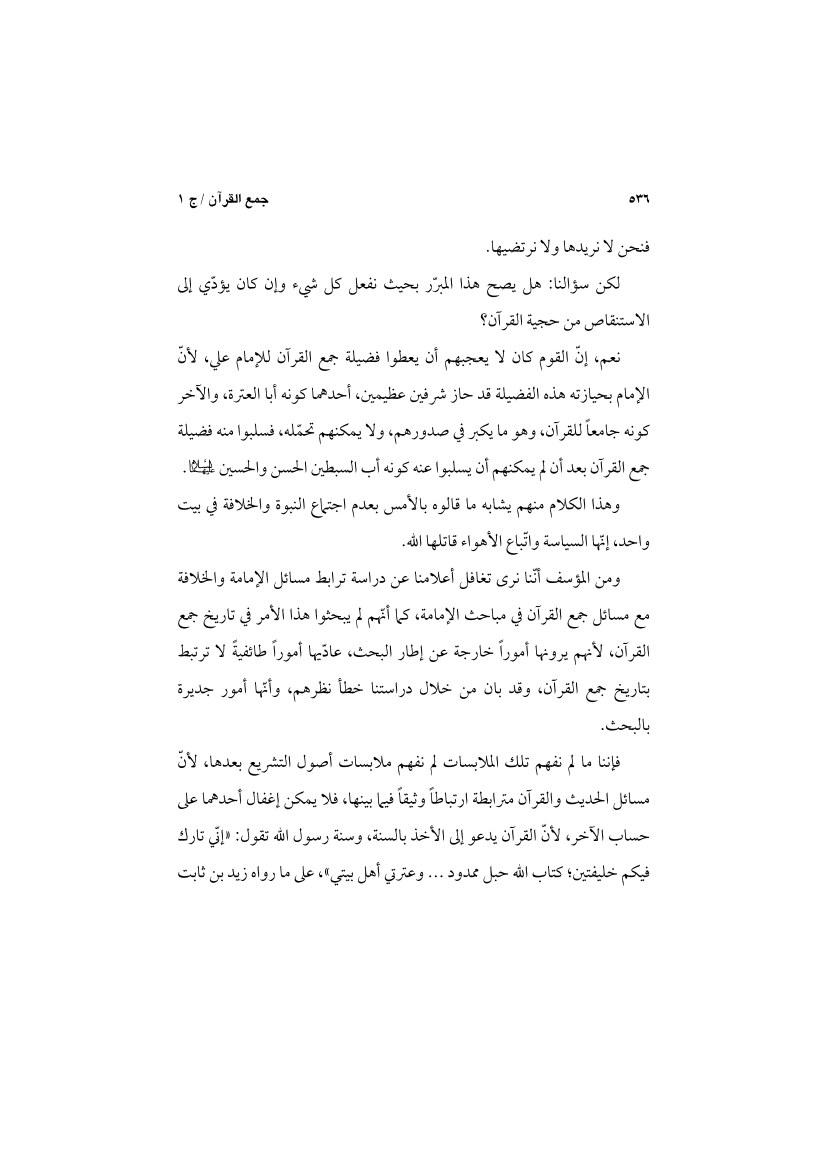 ٥٣٦
جمع القرآن / ج ١
فنحن لا نريدها ولا نرتضيها.
لكن سؤالنا: هل يصح هذا المبرّر بحيث نفعل كل شيء وإن كان يؤدّي إلى
الاستنقاص من حجية القرآن؟
نعم، إنّ القوم كان لا يعجبهم أن يعطوا فضيلة جمع القرآن للإمام علي، لأنّ
الإمام بحيازته هذه الفضيلة قد حاز شرفين عظيمين، أحدهما كونه أبا العترة، والآخر
كونه جامعاً للقرآن، وهو ما يكبر في صدورهم، ولا يمكنهم تحمّله، فسلبوا منه فضيلة
جمع القرآن بعد أن لم يمكنهم أن يسلبوا عنه كونه أب السبطين الحسن والحسين عليهما السلام.
وهذا الكلام منهم يشابه ما قالوه بالأمس بعدم اجتماع النبوة والخلافة في بيت
واحد، إنّها السياسة واتّباع الأهواء قاتلها الله.
ومن المؤسف أنّنا نرى تغافل أعلامنا عن دراسة ترابط مسائل الإمامة والخلافة
مع مسائل جمع القرآن في مباحث الإمامة، كما أنّهم لم يبحثوا هذا الأمر في تاريخ جمع
القرآن، لأنهم يرونها أموراً خارجة عن إطار البحث، عادّيها أموراً طائفيةً لا ترتبط
بتاريخ جمع القرآن، وقد بان من خلال دراستنا خطأ نظرهم، وأنّها أمور جديرة
بالبحث.
فإننا ما لم نفهم تلك الملابسات لم نفهم ملابسات أصول التشريع بعدها، لأنّ
مسائل الحديث والقرآن مترابطة ارتباطاً وثيقاً فيما بينها، فلا يمكن إغفال أحدهما على
حساب الآخر، لأنّ القرآن يدعو إلى الأخذ بالسنة، وسنة رسول الله تقول: «إنّي تارك
فيكم خليفتين؛ كتاب الله حبل ممدود ... وعترتي أهل بيتي»، على ما رواه زيد بن ثابت